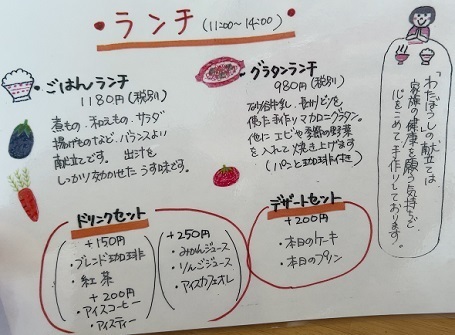 ・ランチ(11:00〜14:00)
ごはんランチ
1180円(税別)
煮もの・和えもの・サラダ
揚げものなど、バランスより
献立です。 出汁を
しっかり効かせたうす味です。
グラタンランチ
980円(税別)
を
使た手作りマカロニグラタン。
他に エビや季節の野菜
を入れて焼き上げます
(パンと珈琲付き)
「わたぼうしの献立は
家族の健康を願う気持ちで
心をこめて手作りしております。
ドリンクセット
+150円
・ブレンド珈琲
・紅茶
+200円
・アイスコーヒー
・アイスティー
+250円
・みかんジュース
・りんごジュース
・アイスカフェオレ
デザートセット
+200円
・本日のケーキ
・本日のプリン